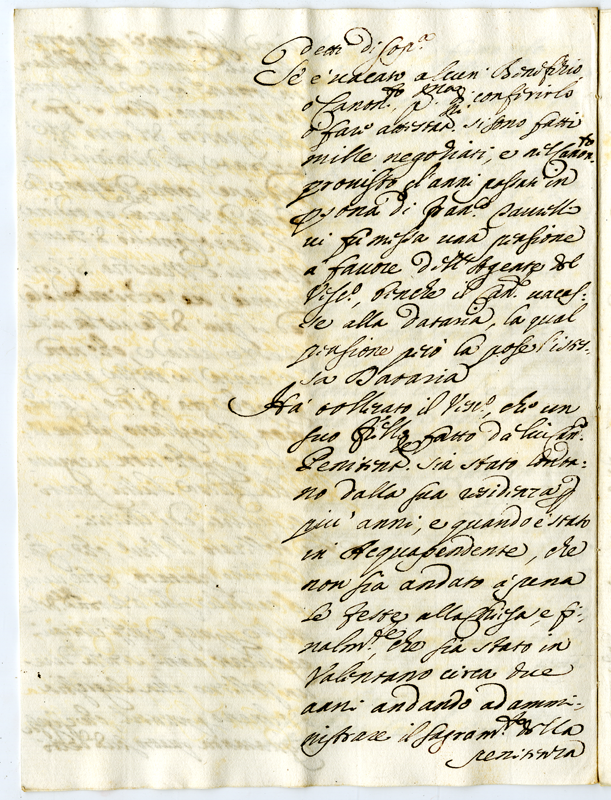 detti di sop.a
Se è vacato alcun Benefizio,
o Canon.to, p.ma di conferirlo
ò farò attestar. si sono fatti
mille negoziati; e nel Canon.to
provisto gl'anni passati in
p̄sona di Fran.co
vi fù messa una pensione
a favore dell'Agente del
Vesc.o, benche il Can.to vacas-
se alla Dataria, la qual
pensione però la pose l'istes-
sa Dataria
Hà tollerato il Vesc.o, che un
suo fatto da lui Can.
Penitenz. sia stato lonta-
no dalla sua residenza p
più anni, e quando è stato
in Acquapendente, che
non sia andato à pena
le feste alla Chiesa, e fi-
nalm.te, che sia stato in
Valentano circa due
anni andando ad ammi-
nistrare il sagram.to della
penitenza